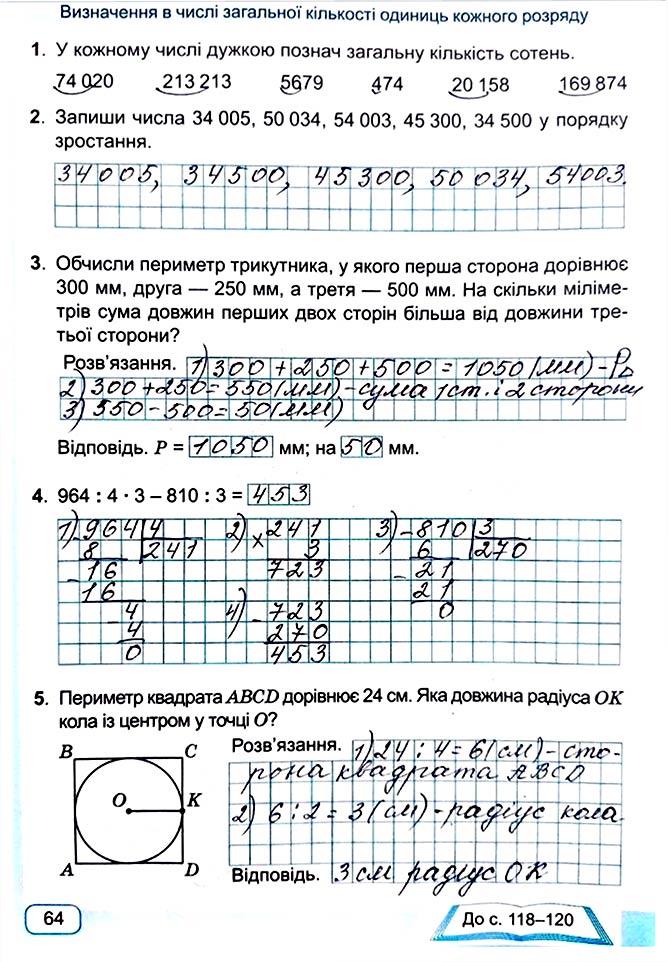 Визначення в числі загальної кількості одиниць кожного розряду
1. У кожному числі дужкою познач загальну кількість сотень.
74 020 213 213 5679 474 20 158 169 874
2. Запиши числа 34 005, 50 034, 54 003, 45 300, 34 500 у порядку
зростання.
34005, 34500, 45300, 50 034, 54003.
3. Обчисли периметр трикутника, у якого перша сторона дорівнює
300 мм, друга — 250 мм, а третя — 500 мм. На скільки міліме-
трів сума довжин перших двох сторін більша від довжини тре-
тьої сторони?
Розв'язання. 1) 300 + 250 + 500 = 1050 (мм) - P△
2) 300 + 250 = 550 (мм) - сума 1 ст. і 2 сторони
3) 550 - 500 = 50 (мм)
Відповідь. P = 1050 мм; на 50 мм.
4. 964 : 4 · 3 – 810 : 3 = 453
1) - 964 4 2) 241 3) - 810 3
8 241 × 3 6 270
- 16 723 - 21
16 21
- 4 4) - 723 0
4 270
0 453
5. Периметр квадрата ABCD дорівнює 24 см. Яка довжина радіуса OK
кола із центром у точці O?
B C
O K
A D
Розв'язання. 1) 24 : 4 = 6 (см) - сто-
рона квадрата ABCD
2) 6 : 2 = 3 (см) - радіус кола
Відповідь. 3 см радіус OK
64
До с. 118–120